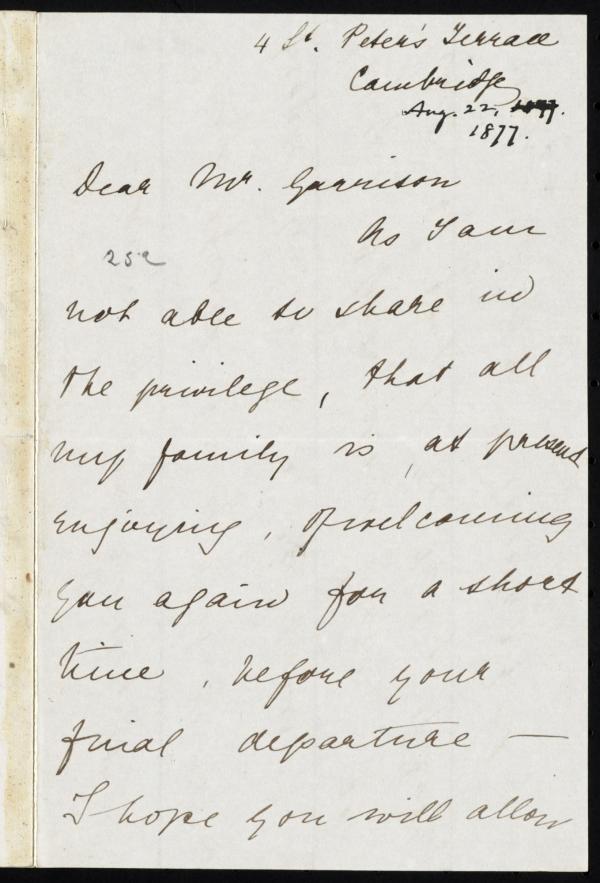 4 St. Peter's Terrace
Cambridge
Aug. 22, 1877.
1877.
Dear Mr. Garrison
As I am
252
not able to share in
the privilege, that all
my family is, at present
enjoying, of welcoming
you again for a short
time, before your
final departure —
I hope you will allow